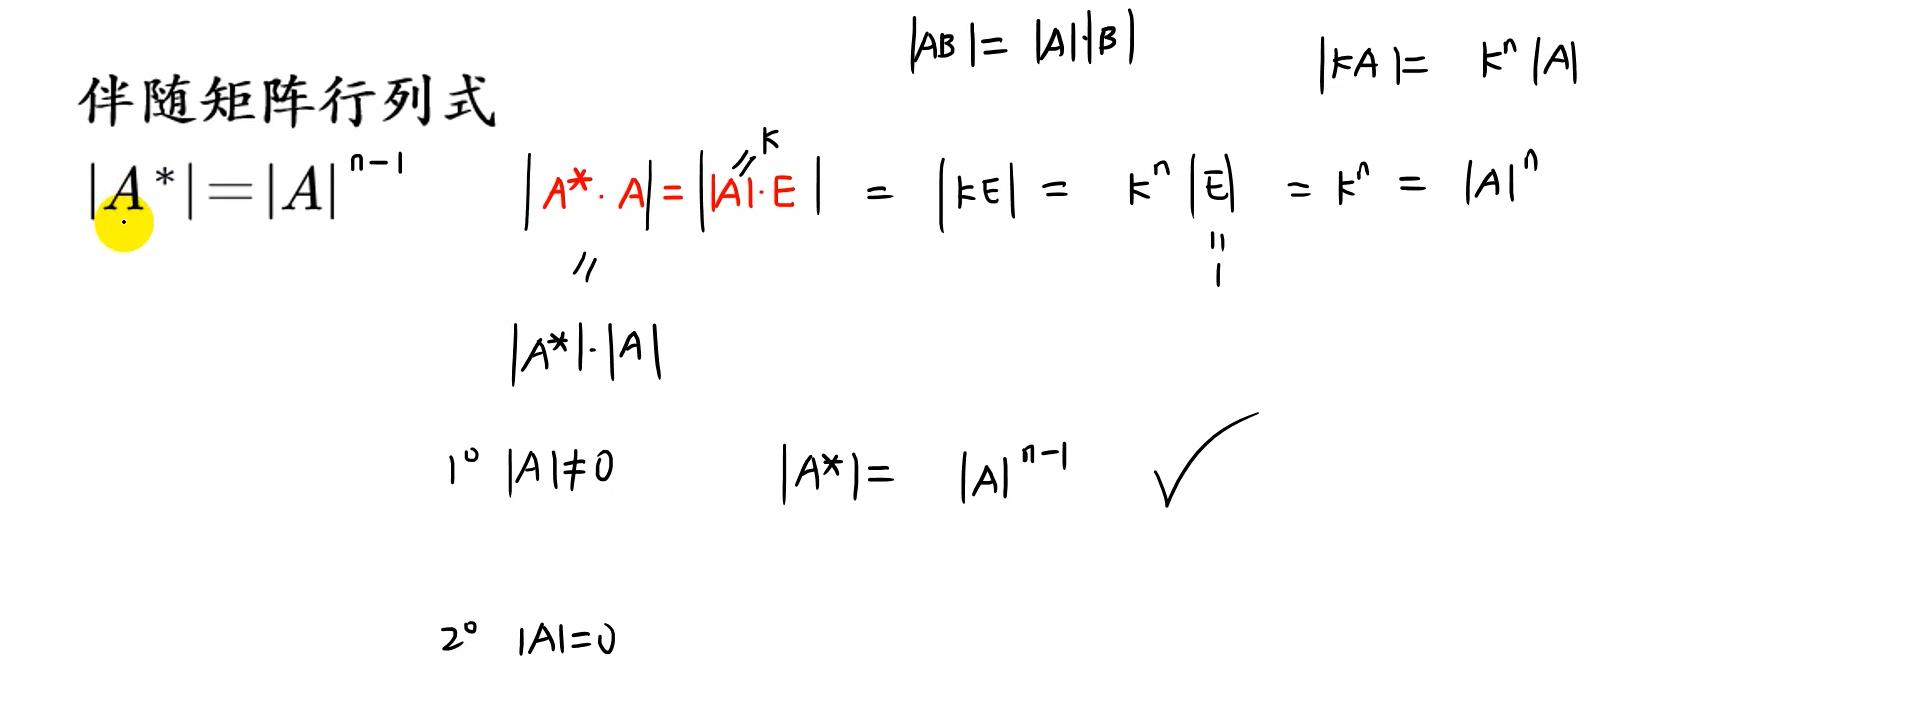 |AB|= |A|·|B| |kA|= kⁿ|A|
伴随矩阵行列式
|A*|=|A|ⁿ⁻¹ |A*·A|=||A|·E| = |kE| = kⁿ|E| = kⁿ = |A|ⁿ
〃 k
〃
1
〃
|A*|·|A|
1° |A|≠0 |A*|= |A|ⁿ⁻¹ ✓
2° |A|=0